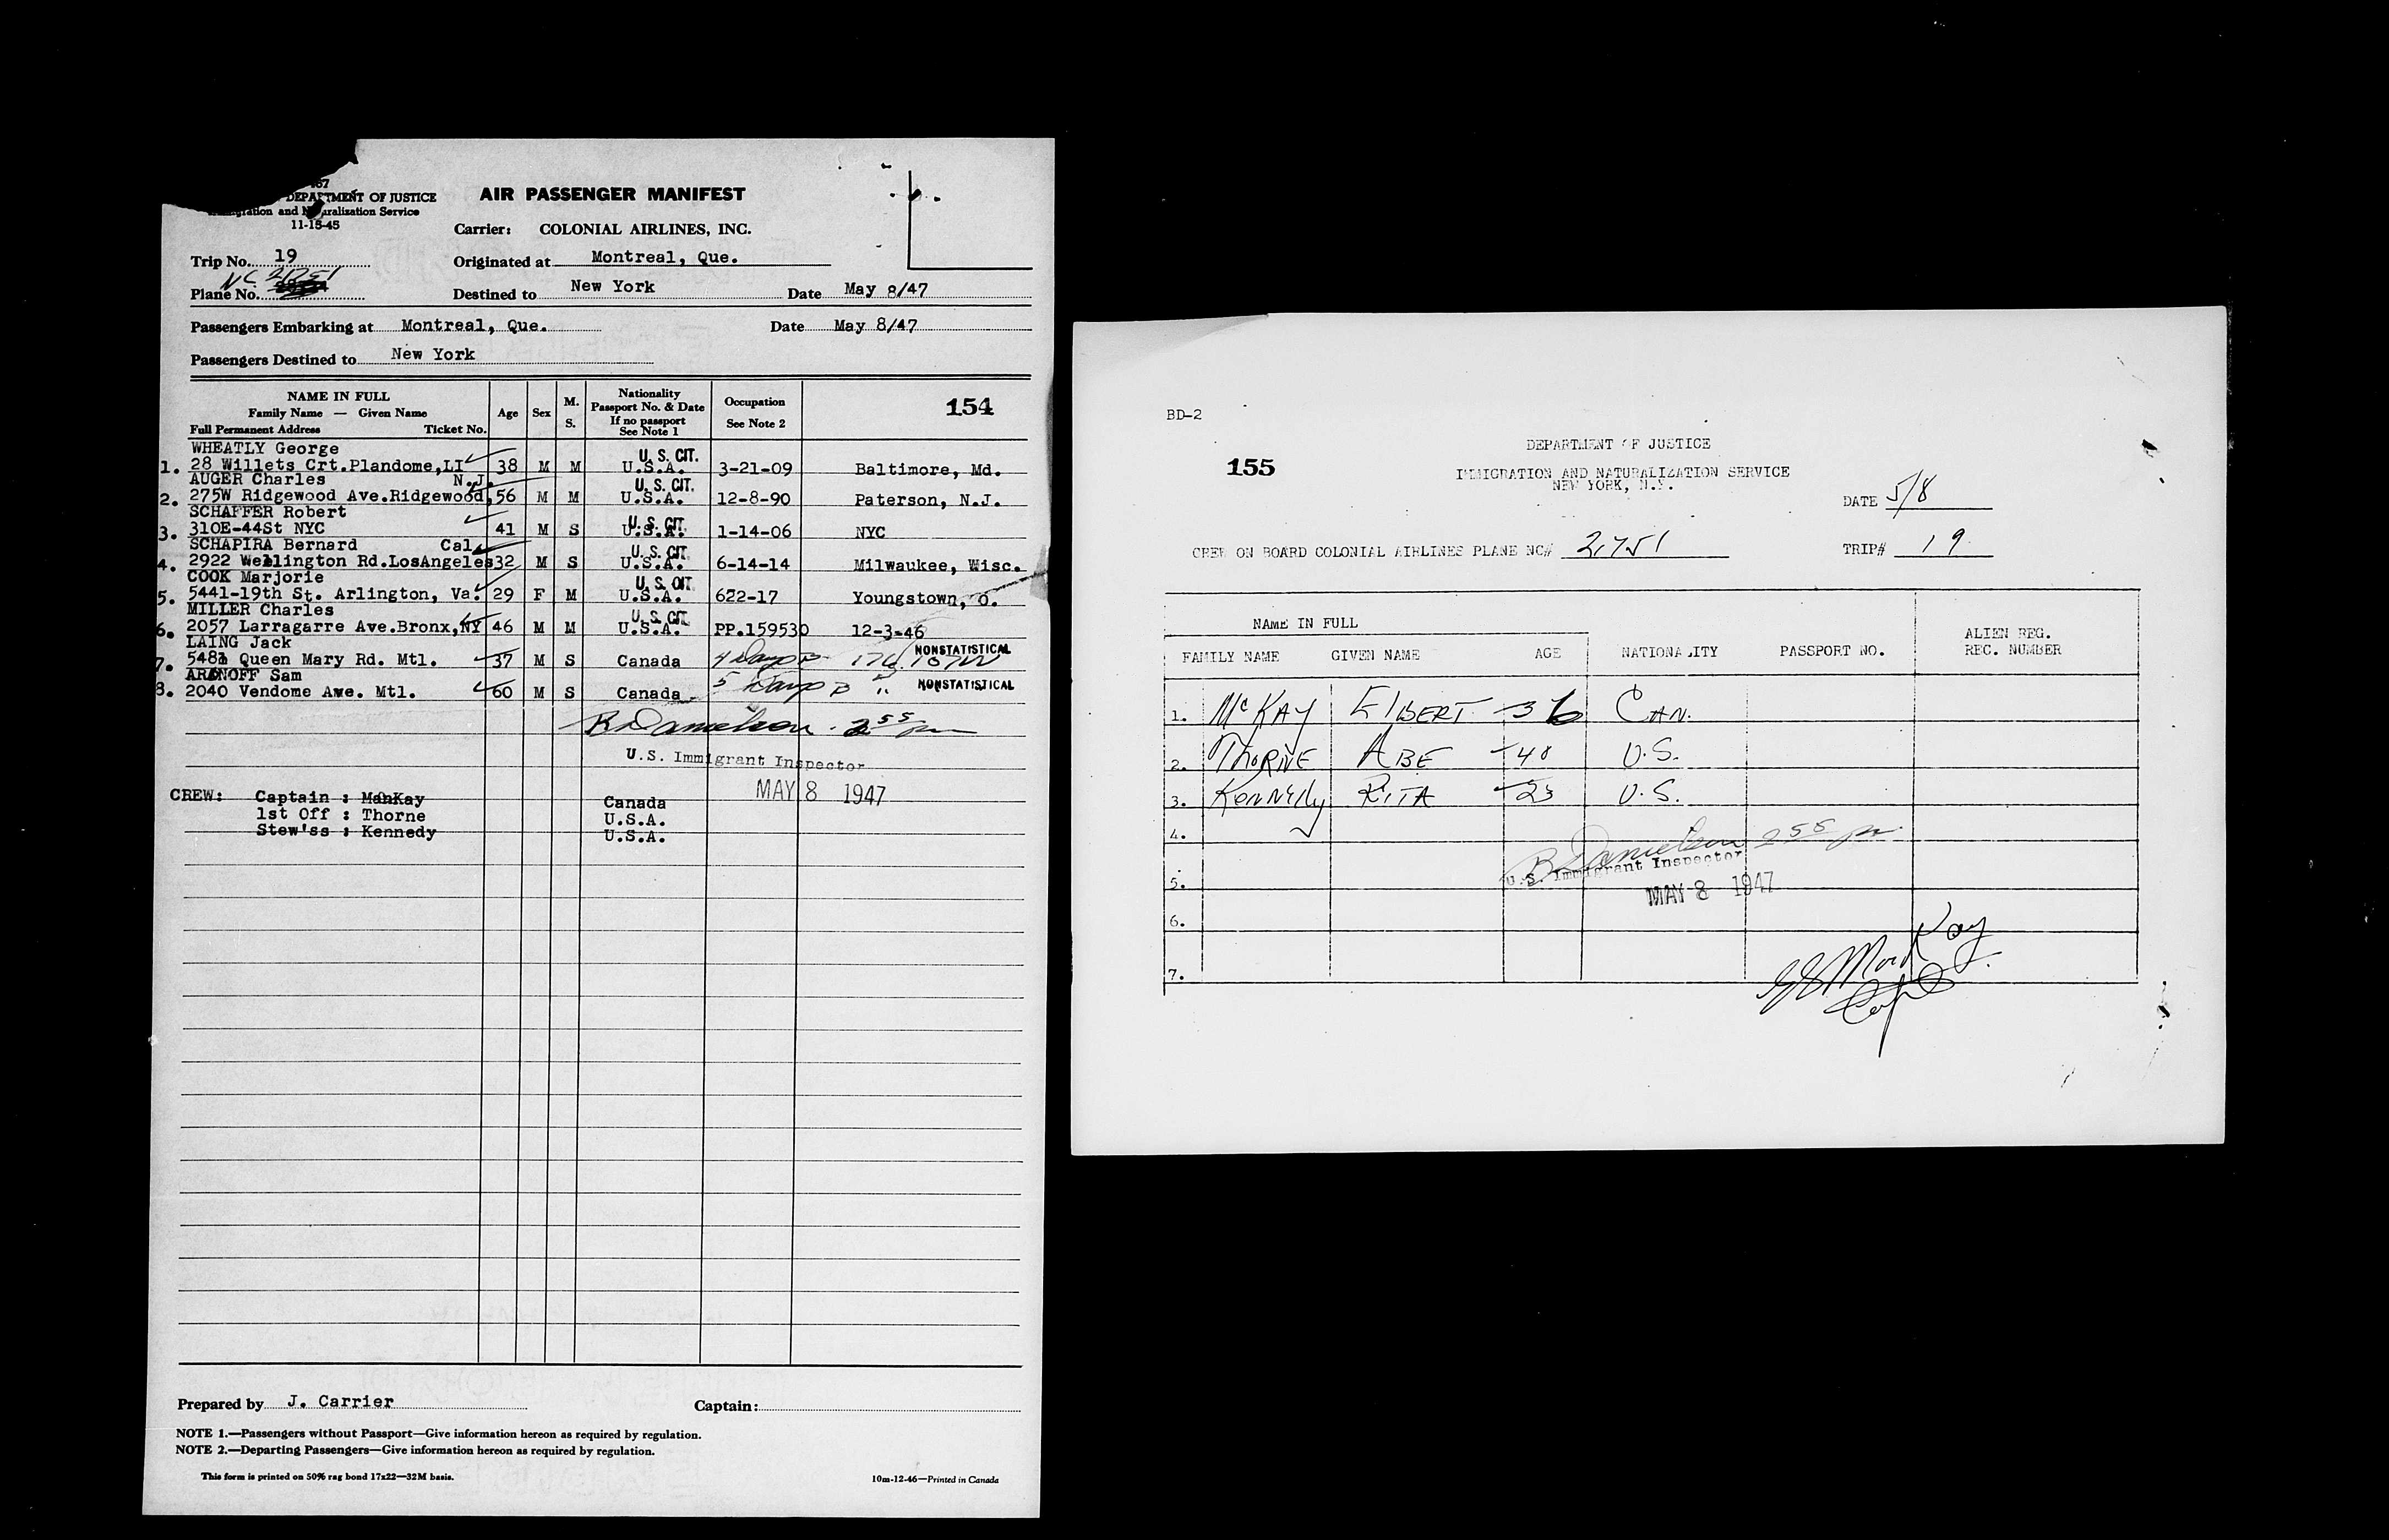 67
DEPARTMENT OF JUSTICE
Immigration and Naturalization Service
11-15-45
AIR PASSENGER MANIFEST
Carrier: COLONIAL AIRLINES, INC.
Trip No. 19
Originated at Montreal, Que.
NC 21751
Plane No.
Destined to New York Date May 8/47
Passengers Embarking at Montreal, Que. Date May 8/47
Passengers Destined to New York
NAME IN FULL
Family Name — Given Name
Full Permanent Address Ticket No.
Age Sex M. S.
Nationality
Passport No. & Date
If no passport
See Note 1
Occupation
See Note 2
154
WHEATLY George
1. 28 Willets Crt.Plandome,LI 38 M M U.S.A. U. S. CIT. 3-21-09 Baltimore, Md.
AUGER Charles N.J.
2. 275W Ridgewood Ave.Ridgewood, 56 M M U.S.A. U. S. CIT. 12-8-90 Paterson, N.J.
SCHAFFER Robert
3. 310E-44St NYC 41 M S U.S.A. U. S. CIT. 1-14-06 NYC
SCHAPIRA Bernard Cal.
4. 2922 Wellington Rd.LosAngeles 32 M S U.S.A. U. S. CIT. 6-14-14 Milwaukee, Wisc.
COOK Marjorie
5. 5441-19th St. Arlington, Va. 29 F M U.S.A. U. S. CIT. 622-17 Youngstown, O.
MILLER Charles
6. 2057 Larragarre Ave.Bronx,NY 46 M M U.S.A. U. S. CIT. PP.159530 12-3-46
LAING Jack
7. Queen Mary Rd. Mtl. 37 M S Canada 4 Days B NONSTATISTICAL
ARONOFF Sam
8. 2040 Vendome Ave. Mtl. 60 M S Canada 5 Days B " NONSTATISTICAL
R Danielson 2 55 pm
U.S. Immigrant Inspector
MAY 8 1947
CREW: Captain : MacKay Canada
1st Off : Thorne U.S.A.
Stew'ss : Kennedy U.S.A.
Prepared by J. Carrier Captain:
NOTE 1.—Passengers without Passport—Give information hereon as required by regulation.
NOTE 2.—Departing Passengers—Give information hereon as required by regulation.
This form is printed on 50% rag bond 17x22—32M basis. 10m-12-46—Printed in Canada
BD-2
155
DEPARTMENT OF JUSTICE
IMMIGRATION AND NATURALIZATION SERVICE
NEW YORK, N.Y.
DATE 5/8
CREW ON BOARD COLONIAL AIRLINES PLANE NC# 21751 TRIP# 19
NAME IN FULL
FAMILY NAME GIVEN NAME AGE NATIONALITY PASSPORT NO. ALIEN REG. REC. NUMBER
1. McKAY ElBERT 36 CAN.
2. THORNE ABE 40 U.S.
3. KENNEDY RITA 23 U.S.
4.
R Danielson 2 55 pm
U.S. Immigrant Inspector
5.
MAY 8 1947
6.
7.
MacKay
Capt